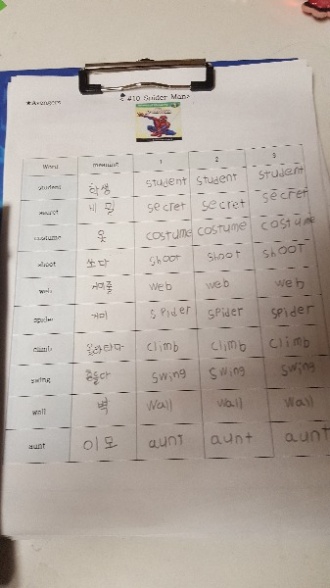 ★Avengers
< #10 Spider Man>
Word meaning 1 2 3
student 학생 student student student
secret 비밀 secret secret secret
costume 옷 costume costume costume
shoot 쏘다 shoot shoot shoot
web 거미줄 web web web
spider 거미 spider spider spider
climb climb climb climb
swing swing swing swing
wall 벽 wall wall wall
aunt 이모 aunt aunt aunt